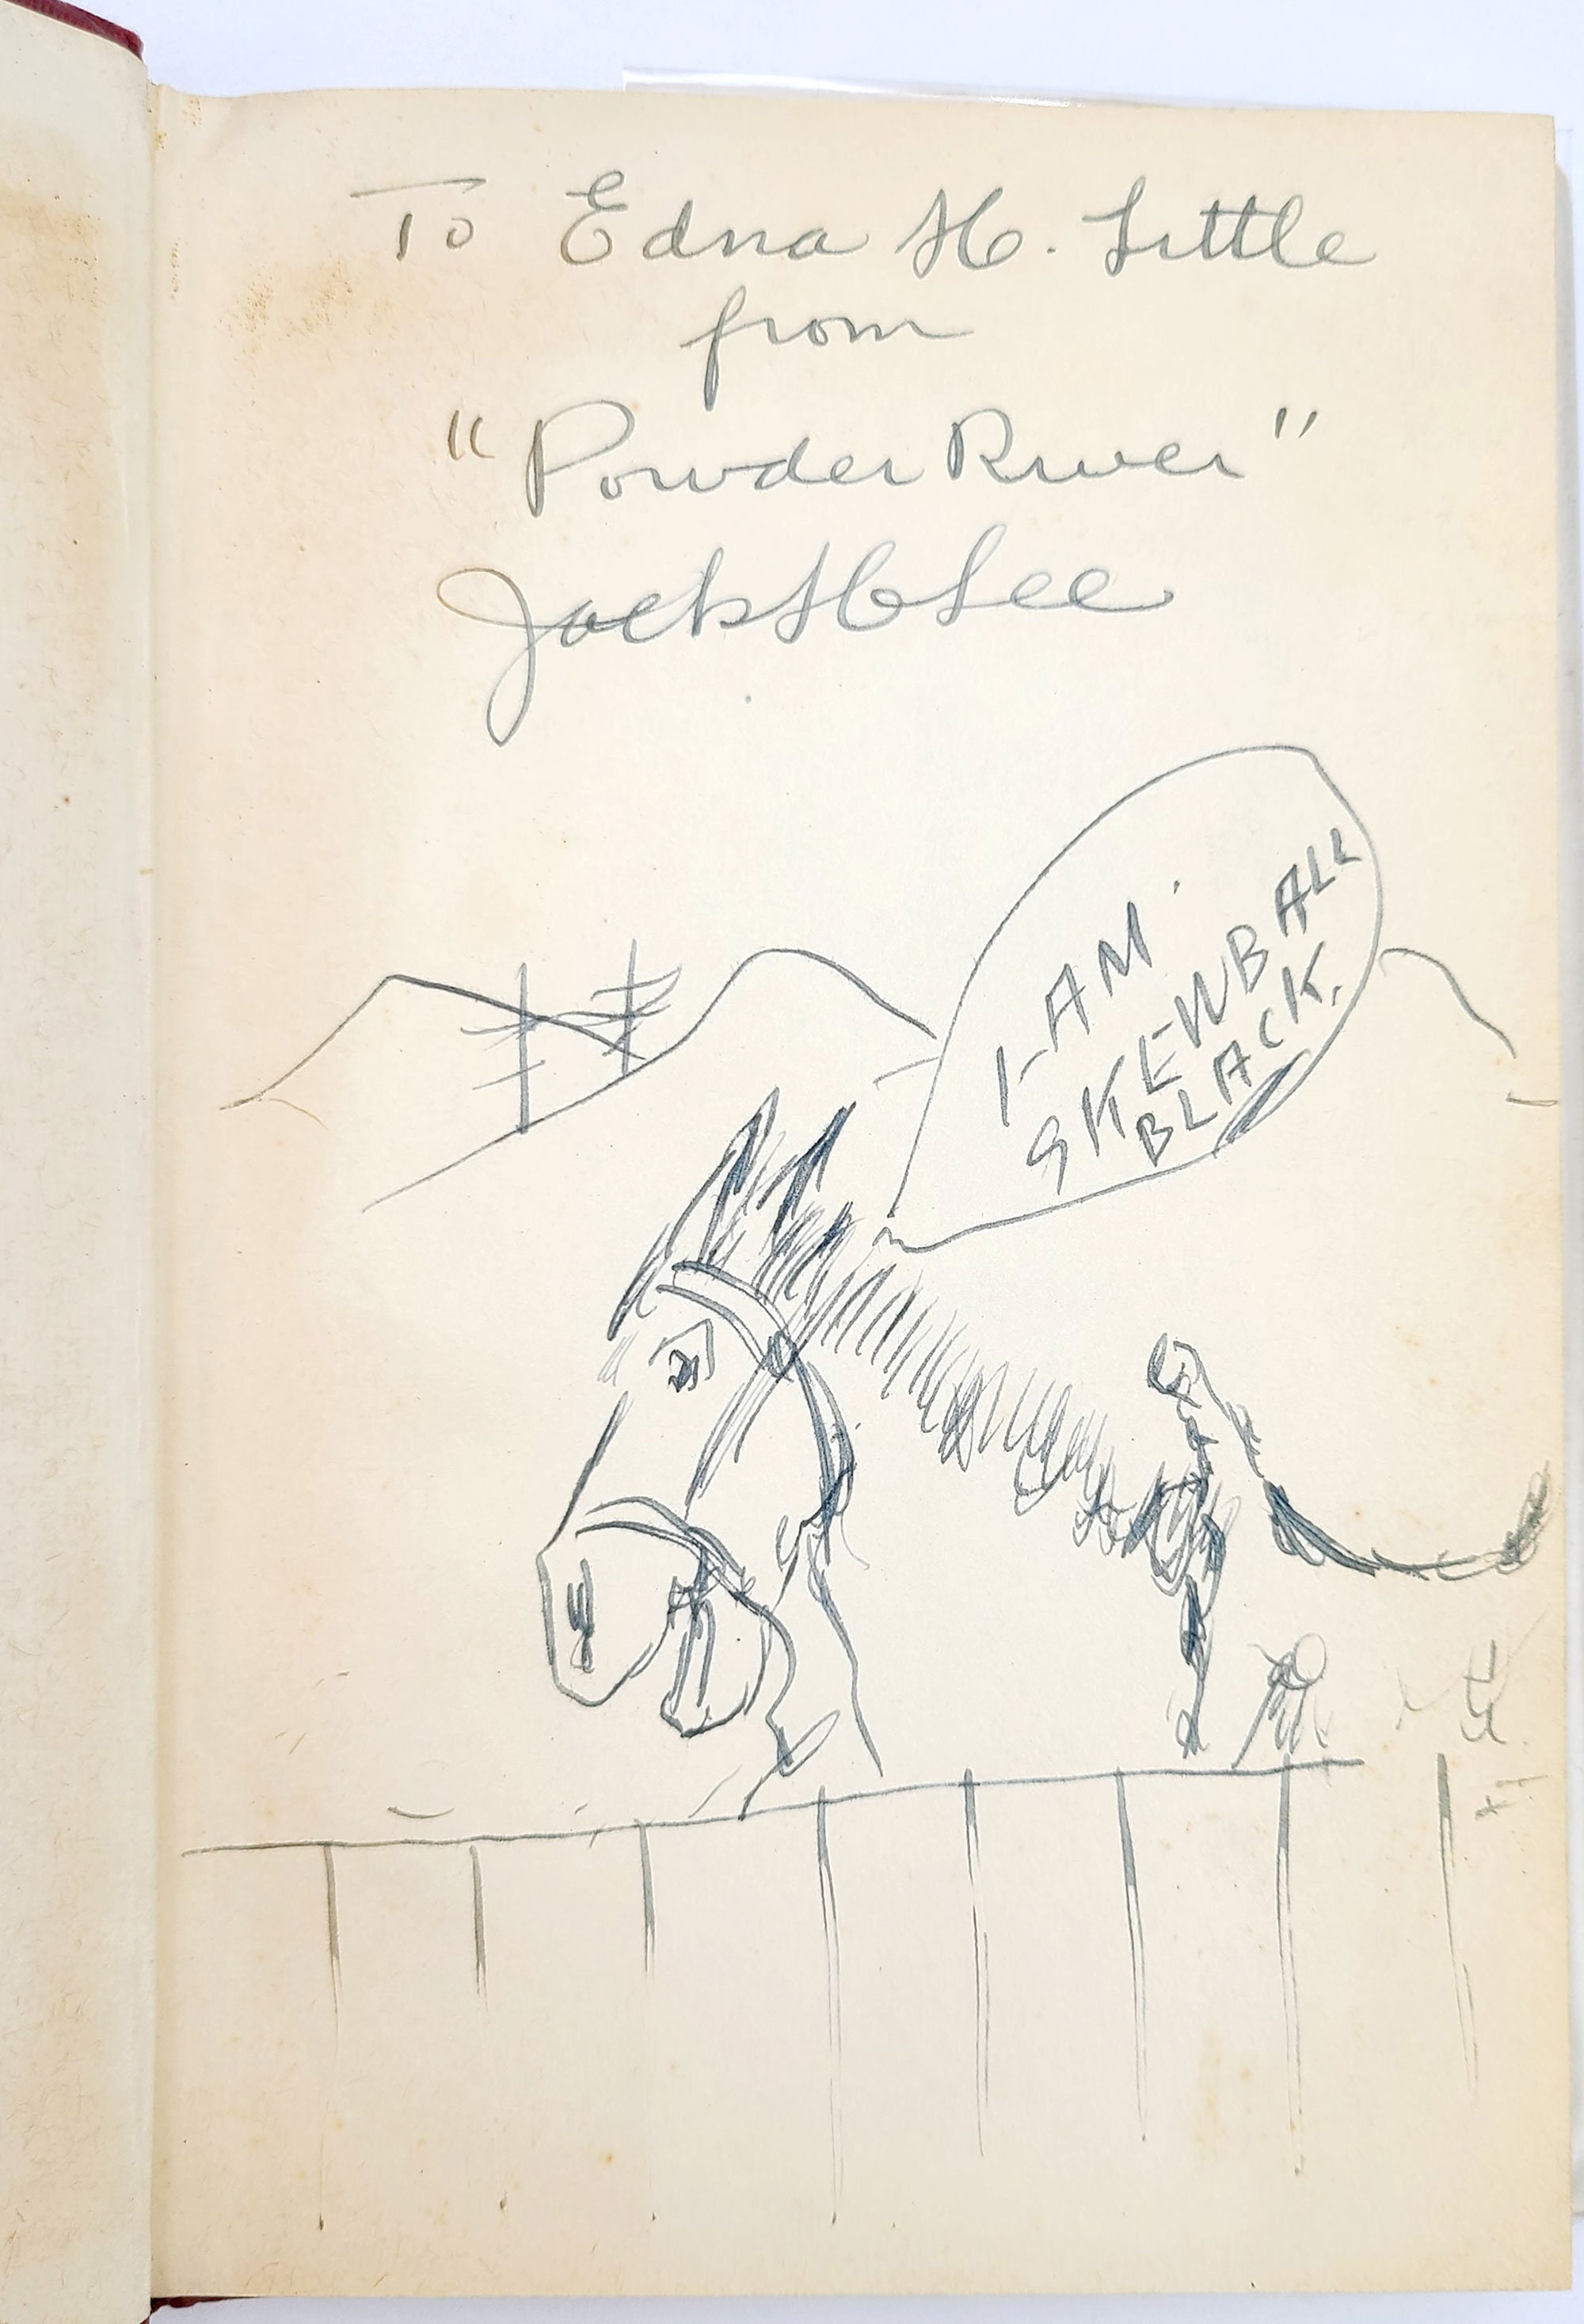 To Edna H. Little
from
"Powder River"
Jack H Lee
I-AM
SKEWBALL
BLACK.